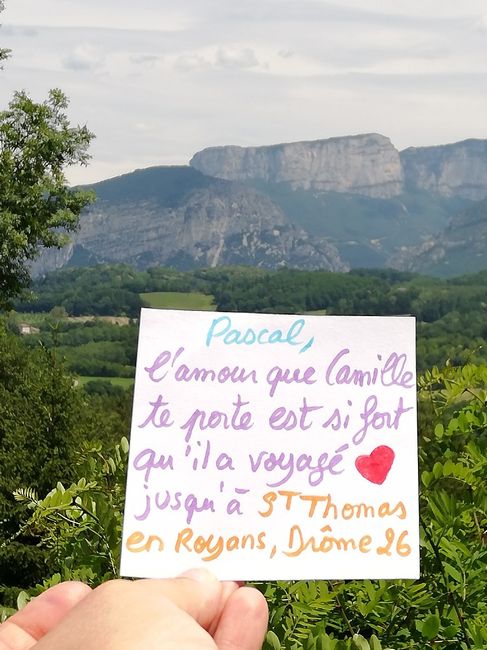 Pascal,
l'amour que Camille
te porte est si fort
qu'il a voyagé
jusqu'à ST Thomas
en Royans, Drôme 26